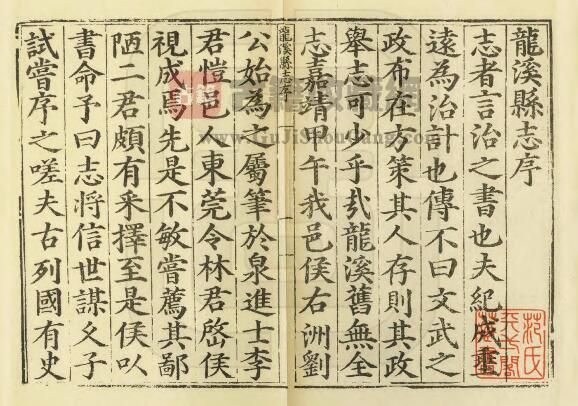 龍溪縣志序
志者言治之書也夫紀成垂
遠為治計也傳不曰文武之
政布在方策其人存則其政
舉志可少乎哉龍溪舊無全
志嘉靖甲午我邑侯右洲劉
龍溪縣志序
公始為之屬筆於泉進士李
君愷邑人東莞令林君啓侯
視成焉先是不敏嘗薦其鄙
陋二君頗有采擇至是侯以
書命予曰志將信世謀久子
試嘗序之嗟夫古列國有史
www.GuJiShuCang.com